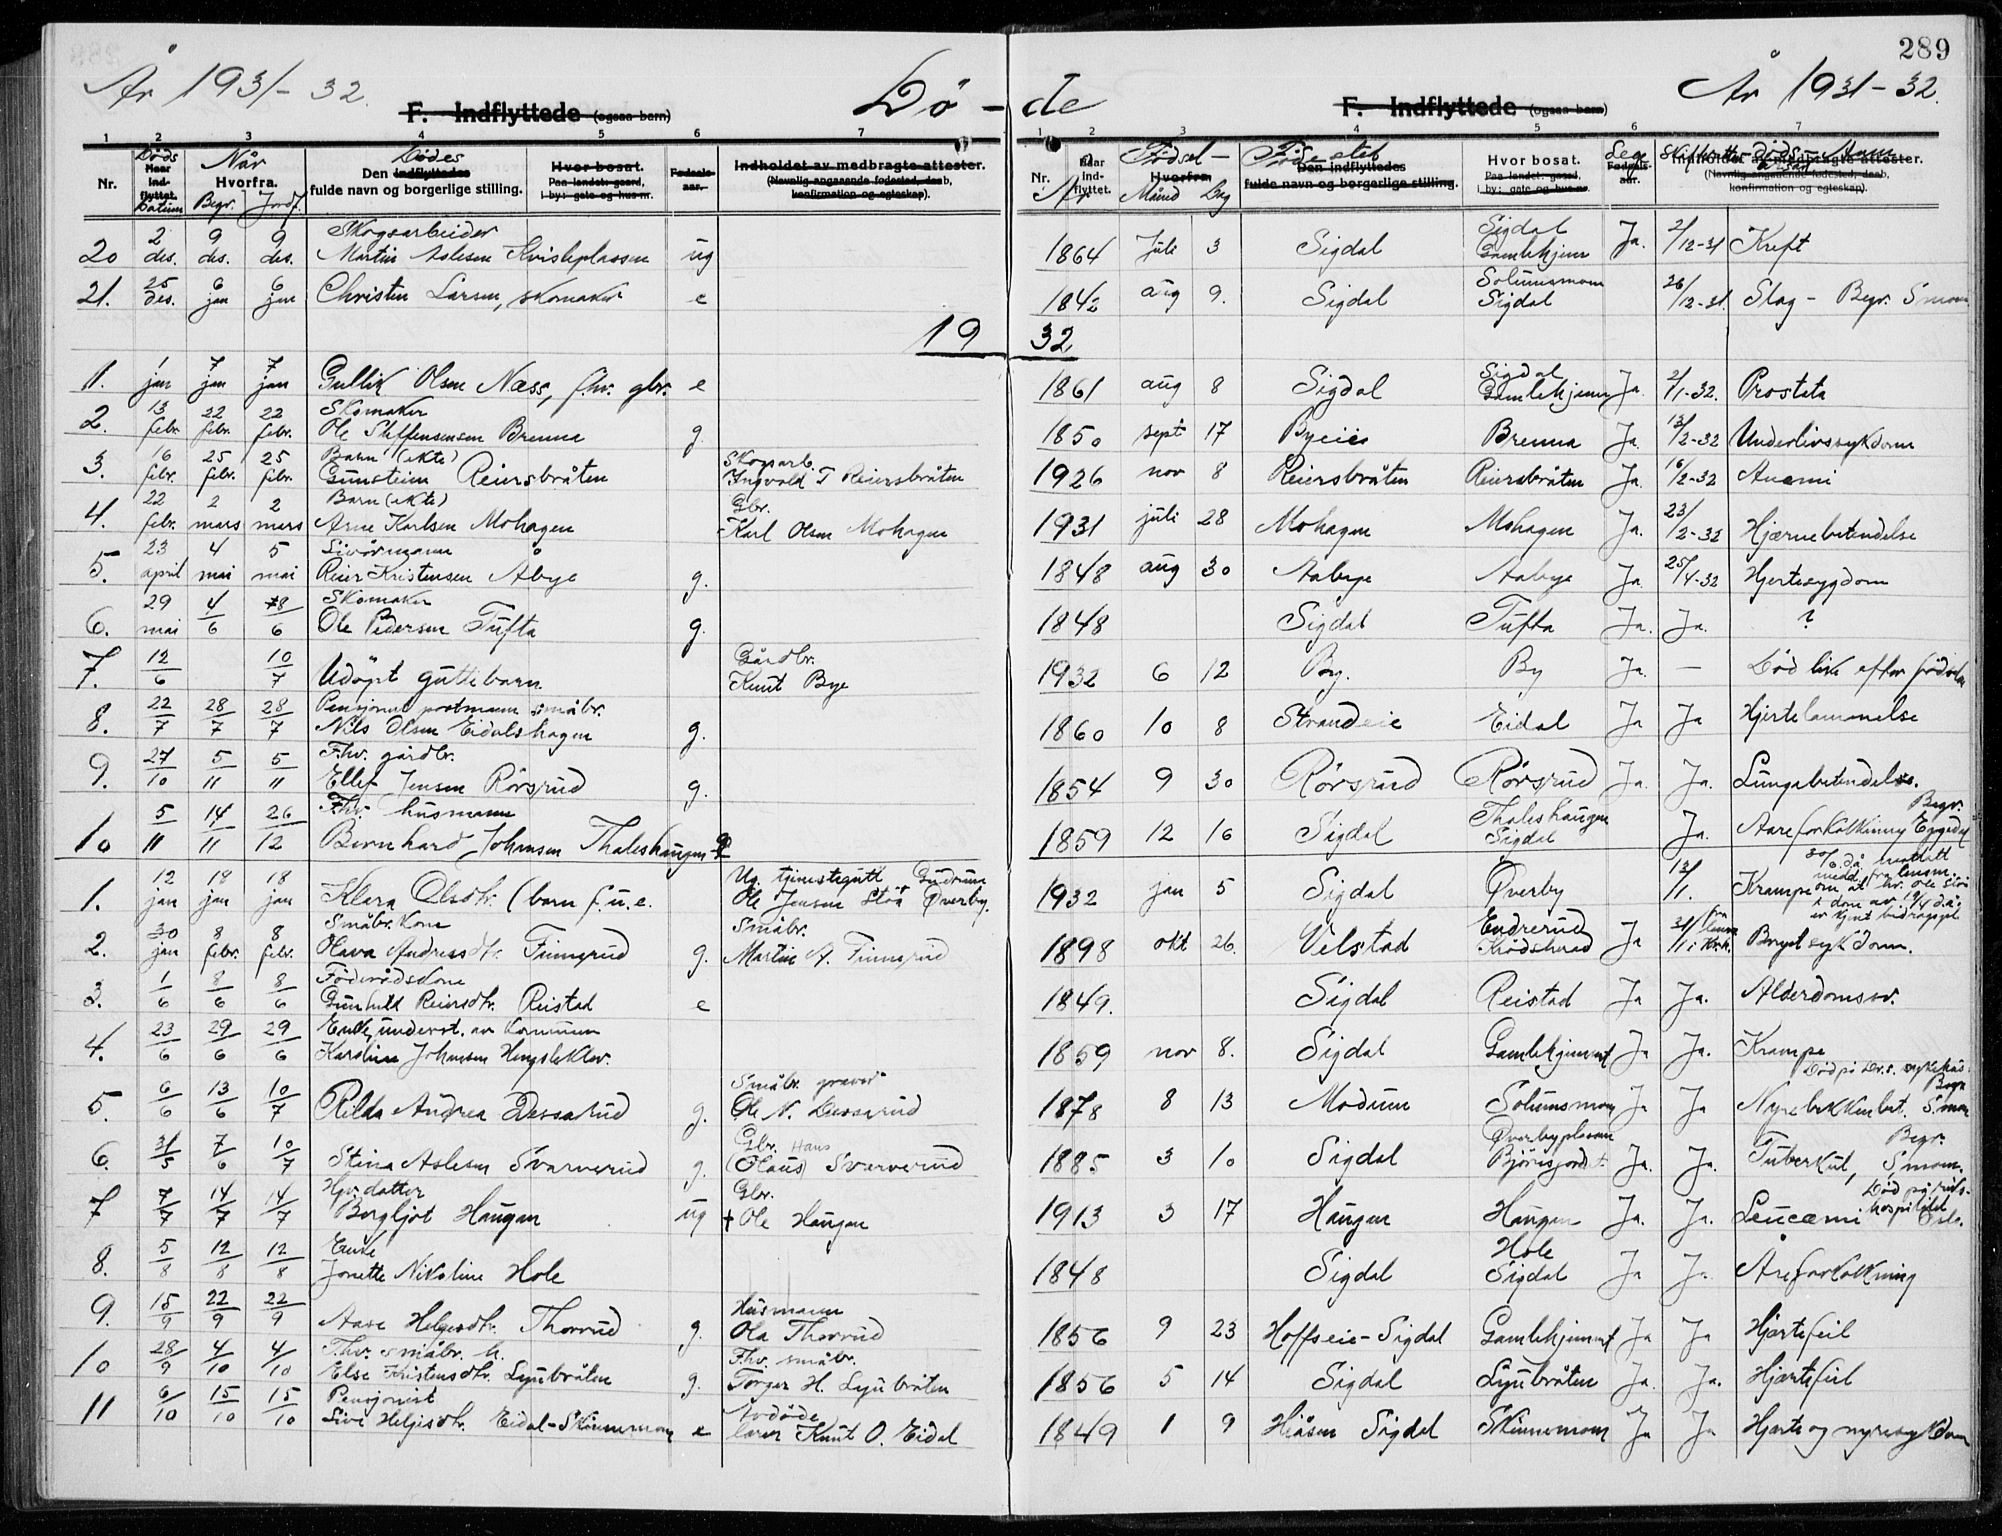 289
År 1931-32.
Dö - de
År 1931-32.
F. Indflyttede (ogsaa barn)
F. Indflyttede (ogsaa barn)
1 2 3 4 5 6 7
1 2 3 4 5 6 7
Nr. Döds Naar ind-flyttet. Datum Når Hvorfra. Begr. Jordf. Dödes Den indflyttedes fulde navn og borgerlige stilling. Hvor bosat. Paa landet: gaard, i by: gate og hus-nr. Fødselsaar. Indholdet av medbragte attester. (Navnlig angaaende fødested, daab, konfirmation og egteskap).
Nr. Naar ind-flyttet. År Födsel- Hvorfra. Måned Dag Födested Den indflyttedes fulde navn og borgerlige stilling. Hvor bosat. Paa landet: gaard, i by: gate og hus-nr. Læge Fødselsaar. Indholdet av medbragte attester. (Navnlig angaaende fødested, daab, konfirmation og egteskap).
20 2 des. 9 des. 9 des. Skogsarbeider Martin Aslesen Kvisleplassen ug 1864 juli 3 Sigdal Sigdal Gamlehjem Ja. 2/12-31 Kreft
21. 25 des. 6 jan 6 jan Christen Larsen, skomaker e 1842 aug 9. Sigdal Solumsmoen Sigdal 26/12-31. Slag - Begr. Smoen
19 32
1. 1 jan 7 jan 7 jan Gullik Olsen Næss, fhv. gbr. e 1861 aug 8 Sigdal Sigdal Gamlehjem Ja 2/1-32. Prostata
2. 13 febr. 22 febr. 22 febr. Skomaker Ole Steffensen Brenna g. 1850 sept 17 Byeie Brenna Ja. 13/2-32 Underlivssykdom
3. 16 febr. 25 febr. 25 febr. Barn (ekte) Gunstein Reiersbråten Skogsarb. Ingvald T Reiersbråten 1926 nov 8 Reiersbråten Reiersbråten Ja. 16/2-32 Anæmi
4. 22 febr. 2 mars 2 mars Barn (ekte) Arne Karlsen Mohagen Gbr. Karl Olsen Mohagen 1931 juli 28 Mohagen Mohagen Ja. 23/2-32 Hjernebetendelse
5. 23 april 4 mai 5 mai Livörmann Reier Kristensen Åbye g. 1848 aug 30 Aabye Aabye Ja 25/4-32 Hjertesygdom
6. 29 mai 4/6 8/6 Skomaker Ole Pedersen Tufta g. 1848 Sigdal Tufta Ja. Ja. ?
7. 12/6 10/7 Udöpt guttebarn Gårdbr. Knut Bye 1932 6 12 By. By Ja. - Död like efter födselen
8. 22/7 28/7 28/7 Pensjonert postmann småbr. Nils Olsen Eidalshagen g. 1860 10 8 Strandeie Eidal Ja Ja Hjertelammelse
9. 27/10 5/11 5/11 Fhv. gårdbr. Ellef Jensen Rörsrud g. 1854 9 30 Rörsrud Rörsrud Ja. Ja. Lungebetendelse.
10 5/11 14/11 26/12 Fhv. husmann Bernhard Johnsen Thaleshaugen g 1859 12 16 Sigdal Thaleshaugen Sigdal Ja. Aareforkalkning Begr. Eggedal
1. 12 jan 18 jan 18 jan Klara Olsdtr. (barn f.u.e. Ug. tjenestegutt Ole Jensen Stöa Gudrun Överby. 1932 jan 5 Sigdal Överby 13/1. Krampe
2. 30 jan 8 febr. 8 febr. Småbr. Kone Olava Andreasdtr. Finnsrud g. Småbr. Martin A. Finnsrud 1898 okt 26 Velstad Endrerud Krödsherad Ja 31/1 Brystsykdom.
3. 1/6 8/6 8/6 Föderådskone Gunhild Reiersdtr. Reistad e 1849. Sigdal Reistad Ja Ja. Alderdomssv.
4. 23/6 29/6 29/6 Enke, underst. av Kommunen Karoline Johnsen Hengsleklev. 1859 nov 8. Sigdal Gamlehjemmet Ja Ja. Krampe
5. 6/6 13/6 10/7 Rilda Andrea Dessarud g. Småbr. graver Ole N. Dessarud 1878 8 13 Modum Solumsmoen Ja Ja Nyrebekkenbet. Död på Dr.s. sykehus Begr. Smoen
6. 31/5 7/6 10/7 Stina Aslesen Svarverud g. Gbr. Hans (Olaus) Svarverud 1885 3 10 Sigdal Överbyplassen Ja. Ja. Tuberkul, Begr. Smoen.
7 7/7 14/7 14/7 Hjv. datter Borghjot Haugen ug Gbr. † Ole Haugen 1913 3 17 Haugen Haugen Ja. Ja. Leucæmi Död på Riks-hospitalet Oslo.
8. 5/8 12/8 12/8 Enke Jonette Nikoline Hole 1848 Sigdal Hole Sigdal Ja Ja. Åreforkalkning
9. 15/9 22/9 22/9 Aase Helgesdtr. Thorrud g. Husmann Ola Thorrud 1856 9 23 Hoffseie-Sigdal Gamlehjemmet Ja Ja Hjertefeil
10 28/9 4/10 4/10 Fhv. småbr. h. Else Kristensdtr. Ljubråten g. Fhv. småbr. Torger H. Ljubråten 1856 5 14 Sigdal Ljubråten Ja. Ja. Hjertefeil
11 6/10 15/10 15/10 Pensjonist Live Helgesdtr. Eidal-Skinnemoen e Avdöde lærer Knut O. Eidal 1849 1 9 Hiåsen Sigdal Skinnemoen Ja Ja Hjerte og nyresykdom